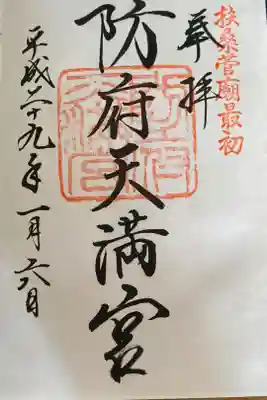 扶桑菅廟最初
奉拝
防府天満宮
平成二十九年一月六日